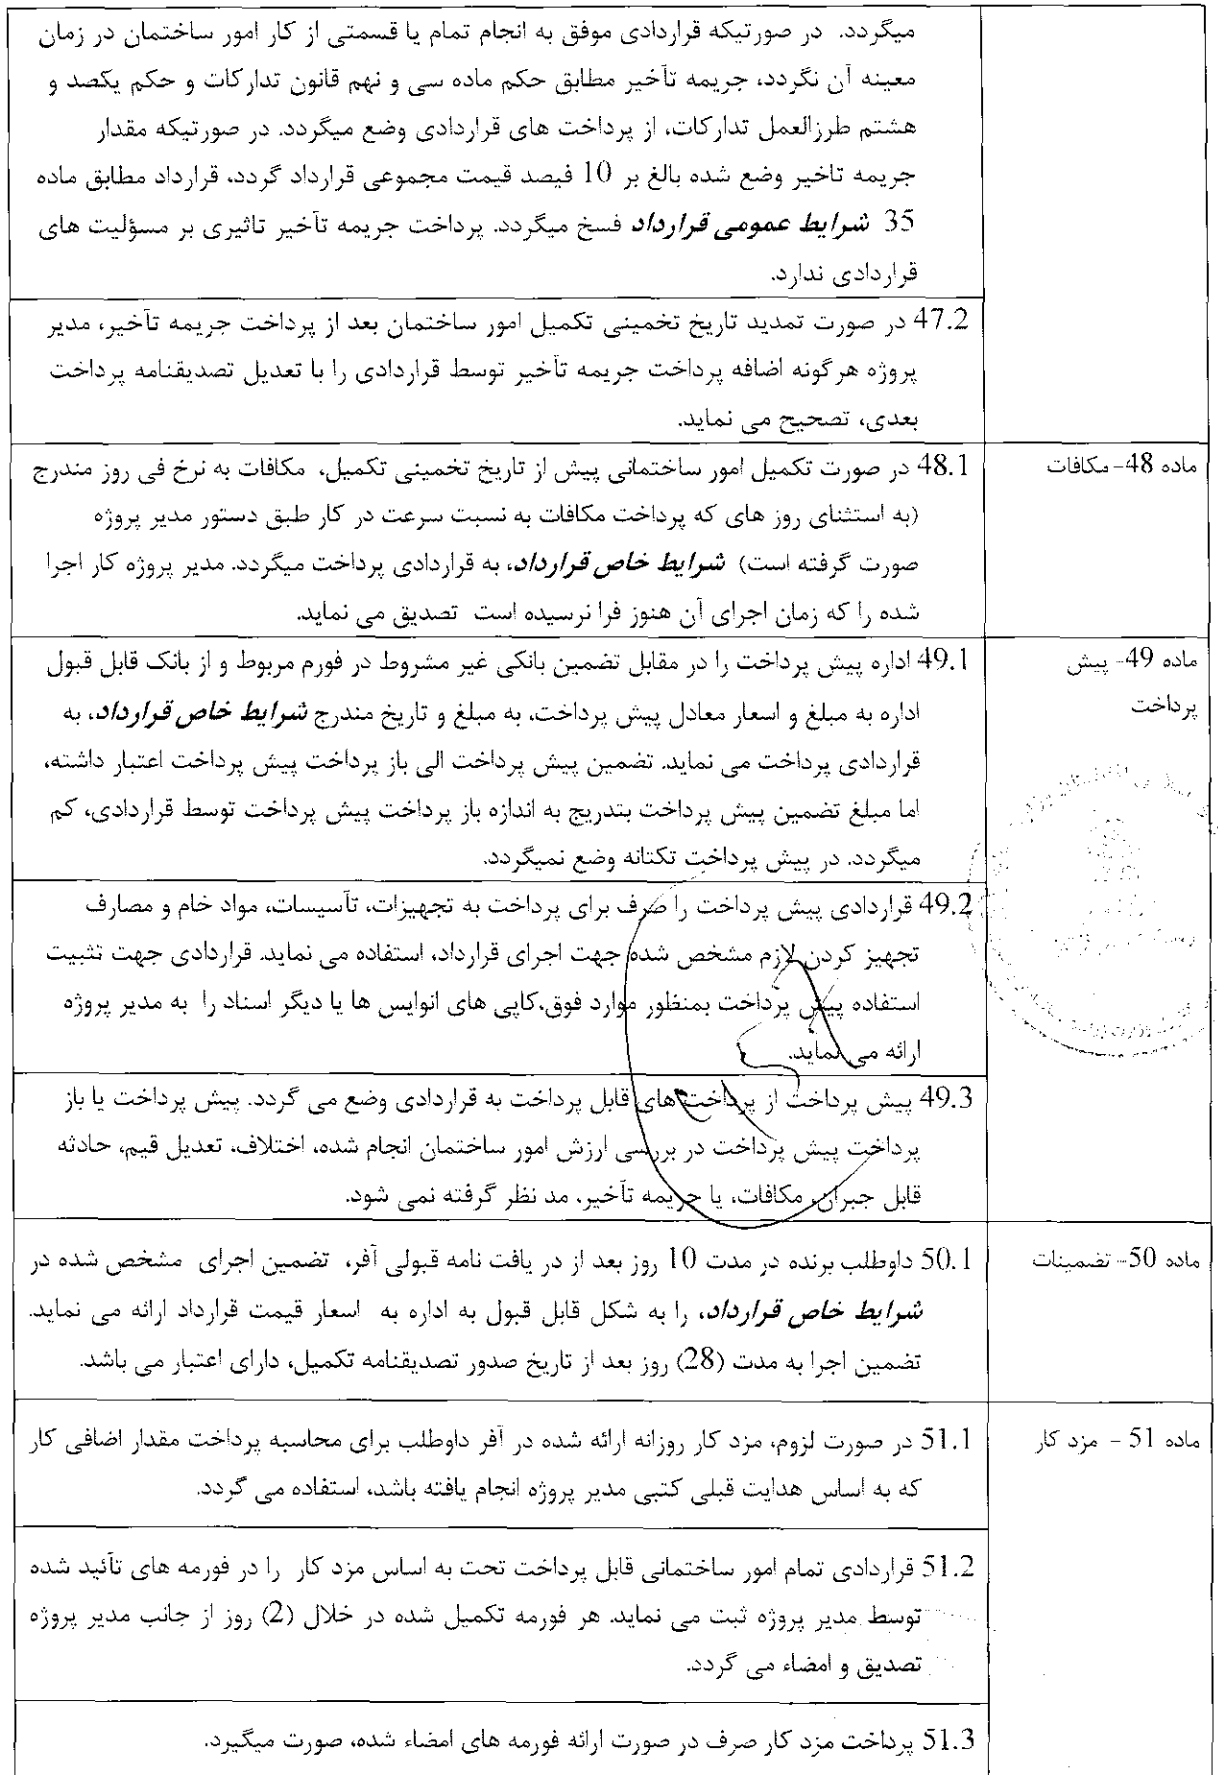 میگردد. در صورتیکه قراردادی موفق به انجام تمام یا قسمتی از کار امور ساختمان در زمان
معینه آن نگردد، جریمه تأخیر مطابق حکم ماده سی و نهم قانون تدارکات و حکم یکصد و
هشتم طرزالعمل تدارکات، از پرداخت های قراردادی وضع میگردد. در صورتیکه مقدار
جریمه تاخیر وضع شده بالغ بر 10 فیصد قیمت مجموعی قرارداد گردد، قرارداد مطابق ماده
35 شرایط عمومی قرارداد فسخ میگردد. پرداخت جریمه تأخیر تاثیری بر مسؤلیت های
قراردادی ندارد.
47.2 در صورت تمدید تاریخ تخمینی تکمیل امور ساختمان بعد از پرداخت جریمه تأخیر، مدیر
پروژه هرگونه اضافه پرداخت جریمه تأخیر توسط قراردادی را با تعدیل تصدیقنامه پرداخت
بعدی، تصحیح می نماید.
ماده 48- مکافات
48.1 در صورت تکمیل امور ساختمانی پیش از تاریخ تخمینی تکمیل، مکافات به نرخ فی روز مندرج
(به استثنای روز های که پرداخت مکافات به نسبت سرعت در کار طبق دستور مدیر پروژه
صورت گرفته است) شرایط خاص قرارداد، به قراردادی پرداخت میگردد. مدیر پروژه کار اجرا
شده را که زمان اجرای آن هنوز فرا نرسیده است تصدیق می نماید.
ماده 49- پیش
پرداخت
49.1 اداره پیش پرداخت را در مقابل تضمین بانکی غیر مشروط در فورم مربوط و از بانک قابل قبول
اداره به مبلغ و اسعار معادل پیش پرداخت، به مبلغ و تاریخ مندرج شرایط خاص قرارداد، به
قراردادی پرداخت می نماید. تضمین پیش پرداخت الی باز پرداخت پیش پرداخت اعتبار داشته،
اما مبلغ تضمین پیش پرداخت بتدریج به اندازه باز پرداخت پیش پرداخت توسط قراردادی، کم
میگردد. در پیش پرداخت تکتانه وضع نمیگردد.
49.2 قراردادی پیش پرداخت را صرف برای پرداخت به تجهیزات، تأسیسات، مواد خام و مصارف
تجهیز کردن لازم مشخص شده جهت اجرای قرارداد، استفاده می نماید. قراردادی جهت تثبیت
استفاده پیش پرداخت بمنظور موارد فوق،کاپی های انوایس ها یا دیگر اسناد را به مدیر پروژه
ارائه می نماید.
49.3 پیش پرداخت از پرداخت های قابل پرداخت به قراردادی وضع می گردد. پیش پرداخت یا باز
پرداخت پیش پرداخت در بررسی ارزش امور ساختمان انجام شده، اختلاف، تعدیل قیم، حادثه
قابل جبران، مکافات، یا جریمه تأخیر، مد نظر گرفته نمی شود.
ماده 50- تضمینات
50.1 داوطلب برنده در مدت 10 روز بعد از در یافت نامه قبولی آفر، تضمین اجرای مشخص شده در
شرایط خاص قرارداد، را به شکل قابل قبول به اداره به اسعار قیمت قرارداد ارائه می نماید.
تضمین اجرا به مدت (28) روز بعد از تاریخ صدور تصدیقنامه تکمیل، دارای اعتبار می باشد.
ماده 51 - مزد کار
51.1 در صورت لزوم، مزد کار روزانه ارائه شده در آفر داوطلب برای محاسبه پرداخت مقدار اضافی کار
که به اساس هدایت قبلی کتبی مدیر پروژه انجام یافته باشد، استفاده می گردد.
51.2 قراردادی تمام امور ساختمانی قابل پرداخت تحت به اساس مزد کار را در فورمه های تأئید شده
توسط مدیر پروژه ثبت می نماید. هر فورمه تکمیل شده در خلال (2) روز از جانب مدیر پروژه
تصدیق و امضاء می گردد.
51.3 پرداخت مزد کار صرف در صورت ارائه فورمه های امضاء شده، صورت میگیرد.